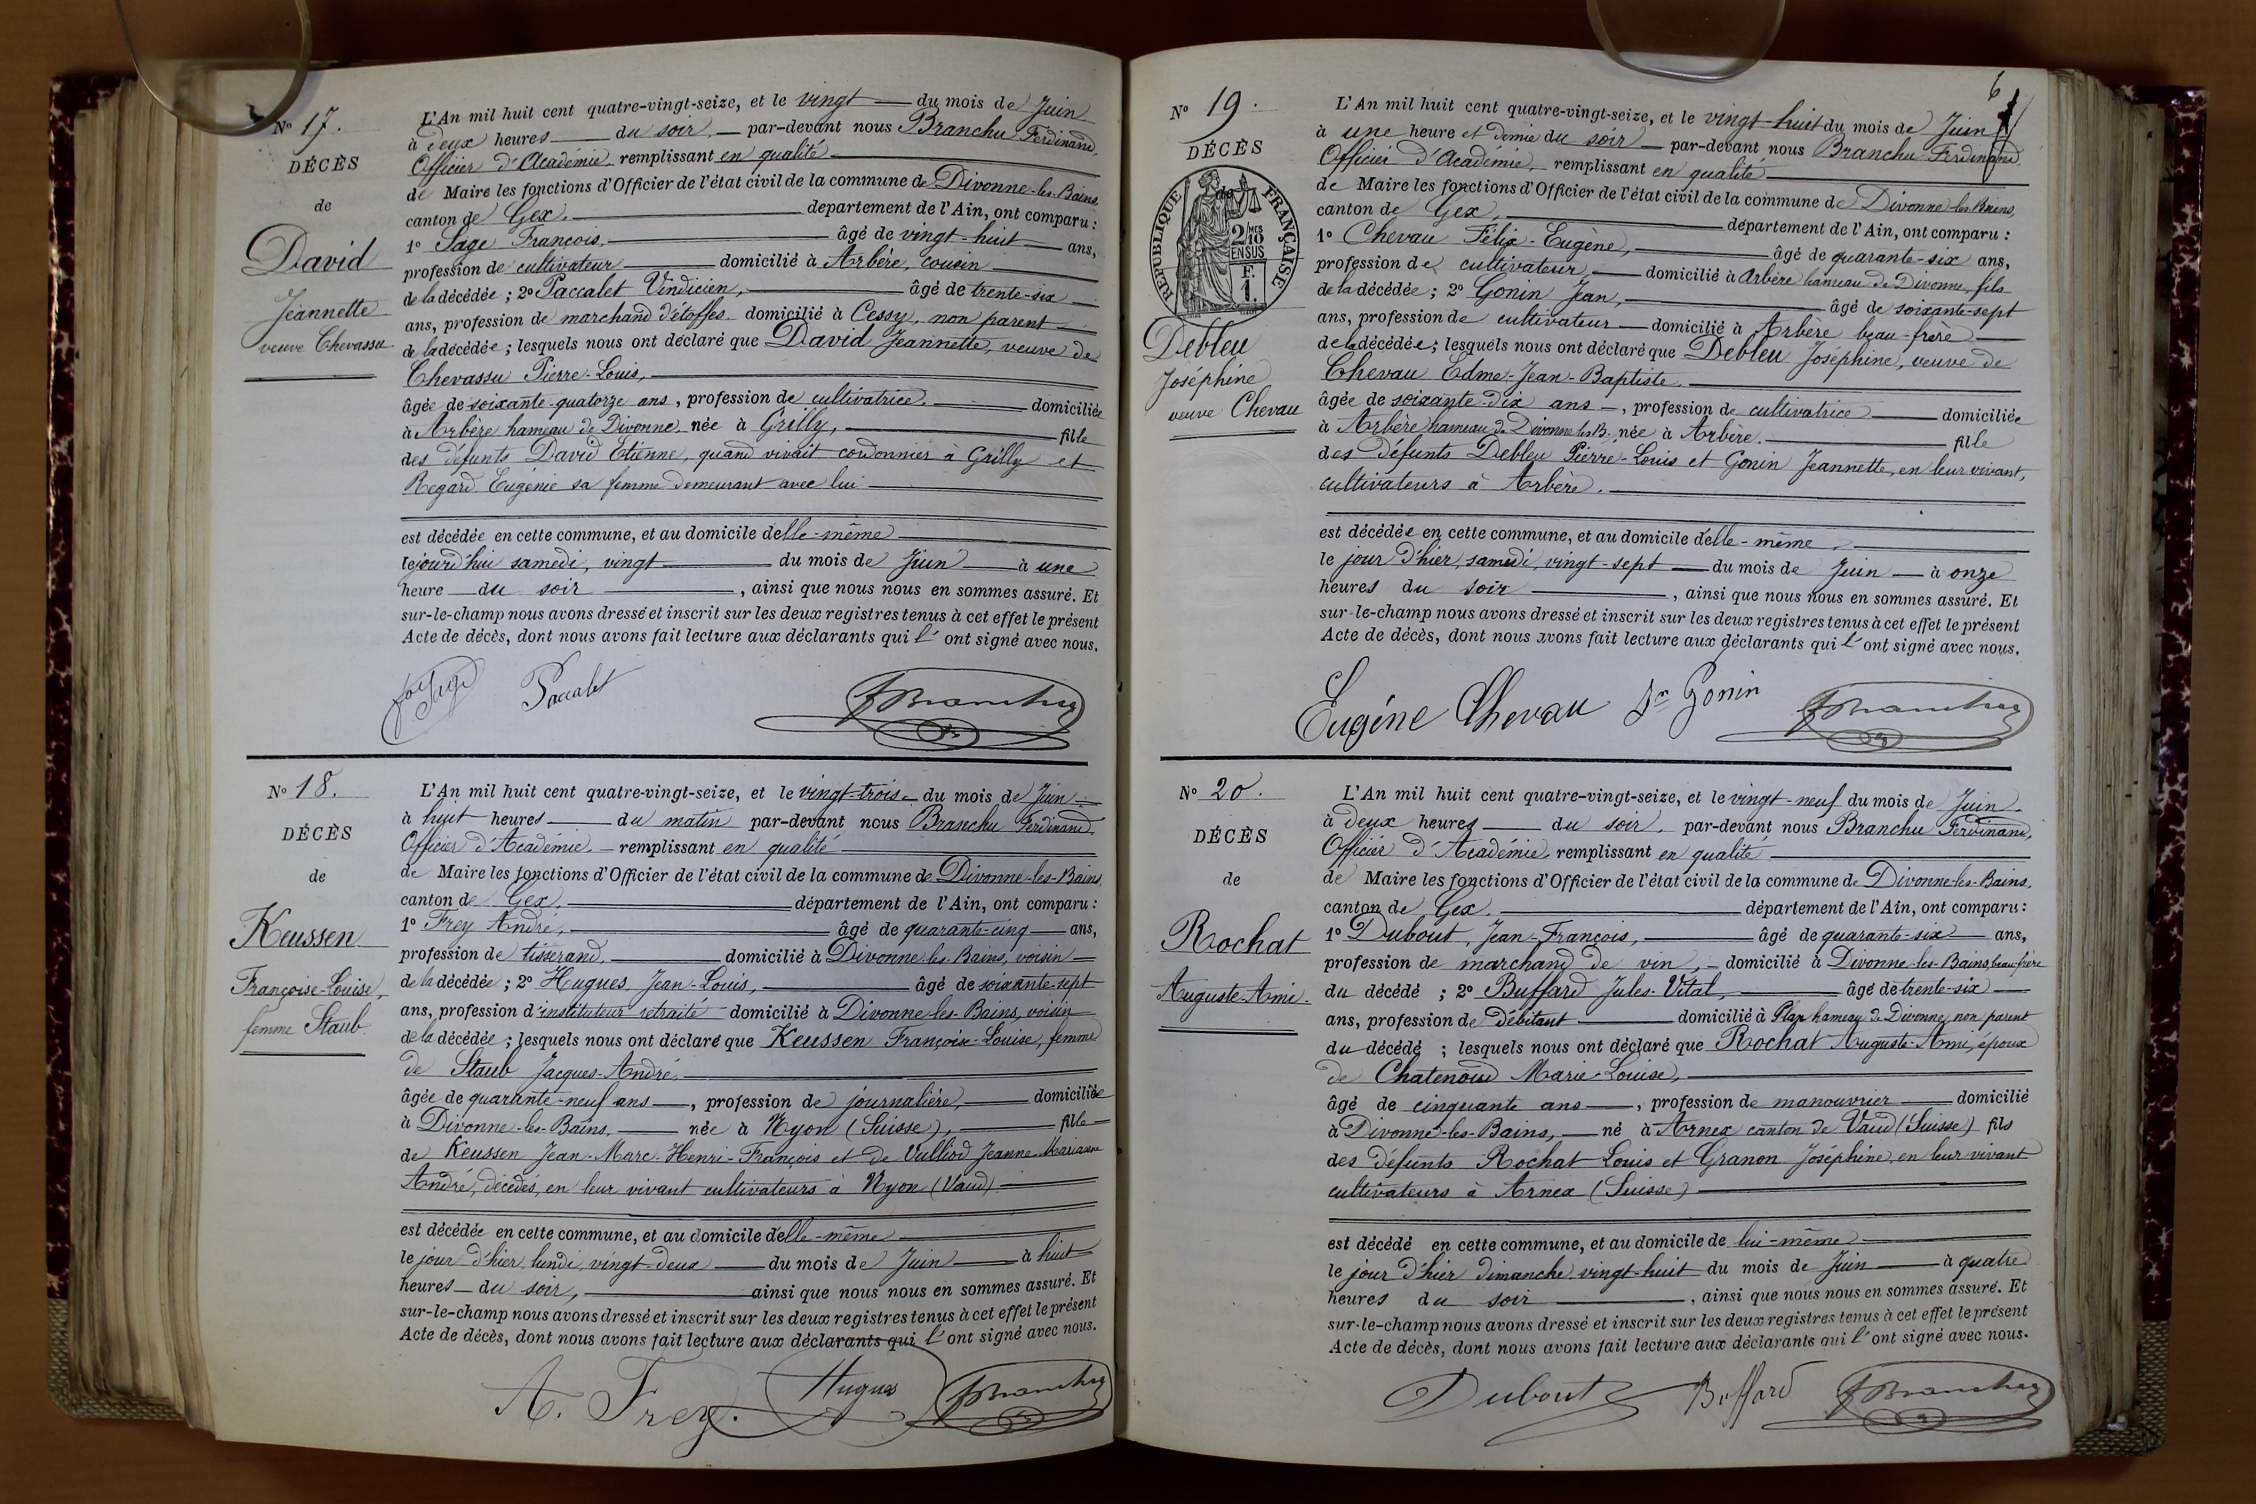 Nº 17.
DÉCÈS
de
David
Jeannette
veuve Chevassu
L'An mil huit cent quatre-vingt-seize, et le vingt du mois de Juin
à deux heures du soir, par-devant nous Branchu Ferdinand,
Officier d'Académie remplissant en qualité
de Maire les fonctions d'Officier de l'état civil de la commune de Divonne-les-Bains,
canton de Gex, département de l'Ain, ont comparu :
1º Sage François, âgé de vingt-huit ans,
profession de cultivateur domicilié à Arbère, cousin
de la décédée ; 2º Paccalet Vindicien, âgé de trente-six
ans, profession de marchand d'étoffes domicilié à Cessy, non parent
de la décédée ; lesquels nous ont déclaré que David Jeannette, veuve de
Chevassu Pierre-Louis,
âgée de soixante-quatorze ans, profession de cultivatrice, domiciliée
à Arbère hameau de Divonne née à Grilly, fille
des défunts David Etienne, quand vivait cordonnier à Grilly et
Regard Eugénie sa femme demeurant avec lui
est décédée en cette commune, et au domicile d'elle-même
le jourd'hui samedi, vingt du mois de Juin à une
heure du soir, ainsi que nous nous en sommes assuré. Et
sur-le-champ nous avons dressé et inscrit sur les deux registres tenus à cet effet le présent
Acte de décès, dont nous avons fait lecture aux déclarants qui l'ont signé avec nous.
fois Sage Paccalet FBranchu
Nº 18.
DÉCÈS
de
Keussen
Françoise-Louise,
femme Staub
L'An mil huit cent quatre-vingt-seize, et le vingt-trois du mois de Juin
à huit heures du matin par-devant nous Branchu Ferdinand,
Officier d'Académie remplissant en qualité
de Maire les fonctions d'Officier de l'état civil de la commune de Divonne-les-Bains,
canton de Gex, département de l'Ain, ont comparu :
1º Frey André, âgé de quarante-cinq ans,
profession de tisserand, domicilié à Divonne-les-Bains, voisin
de la décédée ; 2º Hugues Jean-Louis, âgé de soixante-sept
ans, profession d'instituteur retraité domicilié à Divonne-les-Bains, voisin
de la décédée ; lesquels nous ont déclaré que Keussen Françoise-Louise, femme
de Staub Jacques-André,
âgée de quarante-neuf ans, profession de journalière, domiciliée
à Divonne-les-Bains, née à Nyon (Suisse), fille
de Keussen Jean-Marc-Henri-François et de Vulliod Jeanne-Marianne
André, décédés, en leur vivant cultivateurs à Nyon (Vaud)
est décédée en cette commune, et au domicile d'elle-même
le jour d'hier lundi, vingt-deux du mois de Juin à huit
heures du soir, ainsi que nous nous en sommes assuré. Et
sur-le-champ nous avons dressé et inscrit sur les deux registres tenus à cet effet le présent
Acte de décès, dont nous avons fait lecture aux déclarants qui l'ont signé avec nous.
A. Frey. Hugues FBranchu
6
Nº 19.
DÉCÈS
de
RÉPUBLIQUE FRANÇAISE
2/10 MES
EN SUS
F.
1.
Debleu
Joséphine
veuve Chevau
L'An mil huit cent quatre-vingt-seize, et le vingt-huit du mois de Juin
à une heure et demie du soir par-devant nous Branchu Ferdinand,
Officier d'Académie, remplissant en qualité
de Maire les fonctions d'Officier de l'état civil de la commune de Divonne-les-Bains,
canton de Gex, département de l'Ain, ont comparu :
1º Chevau Félix-Eugène, âgé de quarante-six ans,
profession de cultivateur, domicilié à Arbère hameau de Divonne, fils
de la décédée ; 2º Gonin Jean, âgé de soixante-sept
ans, profession de cultivateur domicilié à Arbère beau-frère
de la décédée ; lesquels nous ont déclaré que Debleu Joséphine, veuve de
Chevau Edme-Jean-Baptiste,
âgée de soixante-dix ans, profession de cultivatrice domiciliée
à Arbère hameau de Divonne les B. née à Arbère, fille
des défunts Debleu Pierre-Louis et Gonin Jeannette, en leur vivant,
cultivateurs à Arbère.
est décédée en cette commune, et au domicile d'elle-même,
le jour d'hier, samedi, vingt-sept du mois de Juin à onze
heures du soir, ainsi que nous nous en sommes assuré. Et
sur-le-champ nous avons dressé et inscrit sur les deux registres tenus à cet effet le présent
Acte de décès, dont nous avons fait lecture aux déclarants qui l'ont signé avec nous.
Eugéne Chevau Jn Gonin FBranchu
Nº 20.
DÉCÈS
de
Rochat
Auguste-Ami.
L'An mil huit cent quatre-vingt-seize, et le vingt-neuf du mois de Juin
à deux heures du soir, par-devant nous Branchu Ferdinand,
Officier d'Académie, remplissant en qualité
de Maire les fonctions d'Officier de l'état civil de la commune de Divonne-les-Bains,
canton de Gex, département de l'Ain, ont comparu :
1º Dubout, Jean-François, âgé de quarante-six ans,
profession de marchand de vin, domicilié à Divonne-les-Bains, beau-frère
du décédé ; 2º Buffard Jules-Vital, âgé de trente-six
ans, profession de débitant domicilié à Plan hameau de Divonne, non parent
du décédé ; lesquels nous ont déclaré que Rochat Auguste-Ami, époux
de Chatenoud Marie-Louise,
âgé de cinquante ans, profession de manouvrier domicilié
à Divonne-les-Bains, né à Arnex canton de Vaud (Suisse) fils
des défunts Rochat Louis et Granon Joséphine en leur vivant
cultivateurs à Arnex (Suisse)
est décédé en cette commune, et au domicile de lui-même
le jour d'hier dimanche vingt-huit du mois de Juin à quatre
heures du soir, ainsi que nous nous en sommes assuré. Et
sur-le-champ nous avons dressé et inscrit sur les deux registres tenus à cet effet le présent
Acte de décès, dont nous avons fait lecture aux déclarants qui l'ont signé avec nous.
Dubout Buffard FBranchu